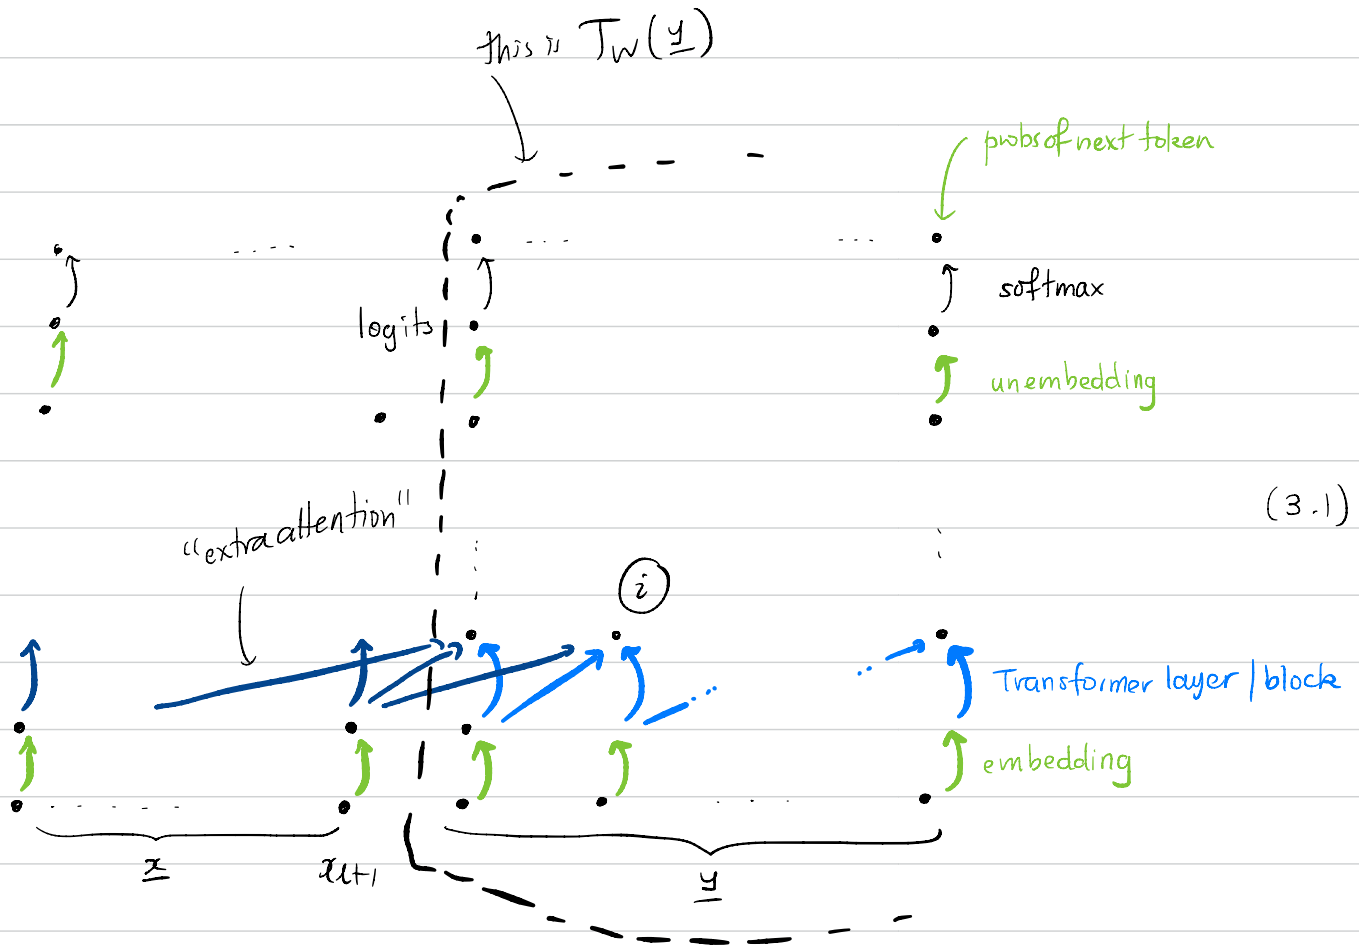 this is T_W(y)
probs of next token
softmax
logits
unembedding
"extra attention"
(3.1)
i
Transformer layer/block
embedding
x
x_{l+1}
y